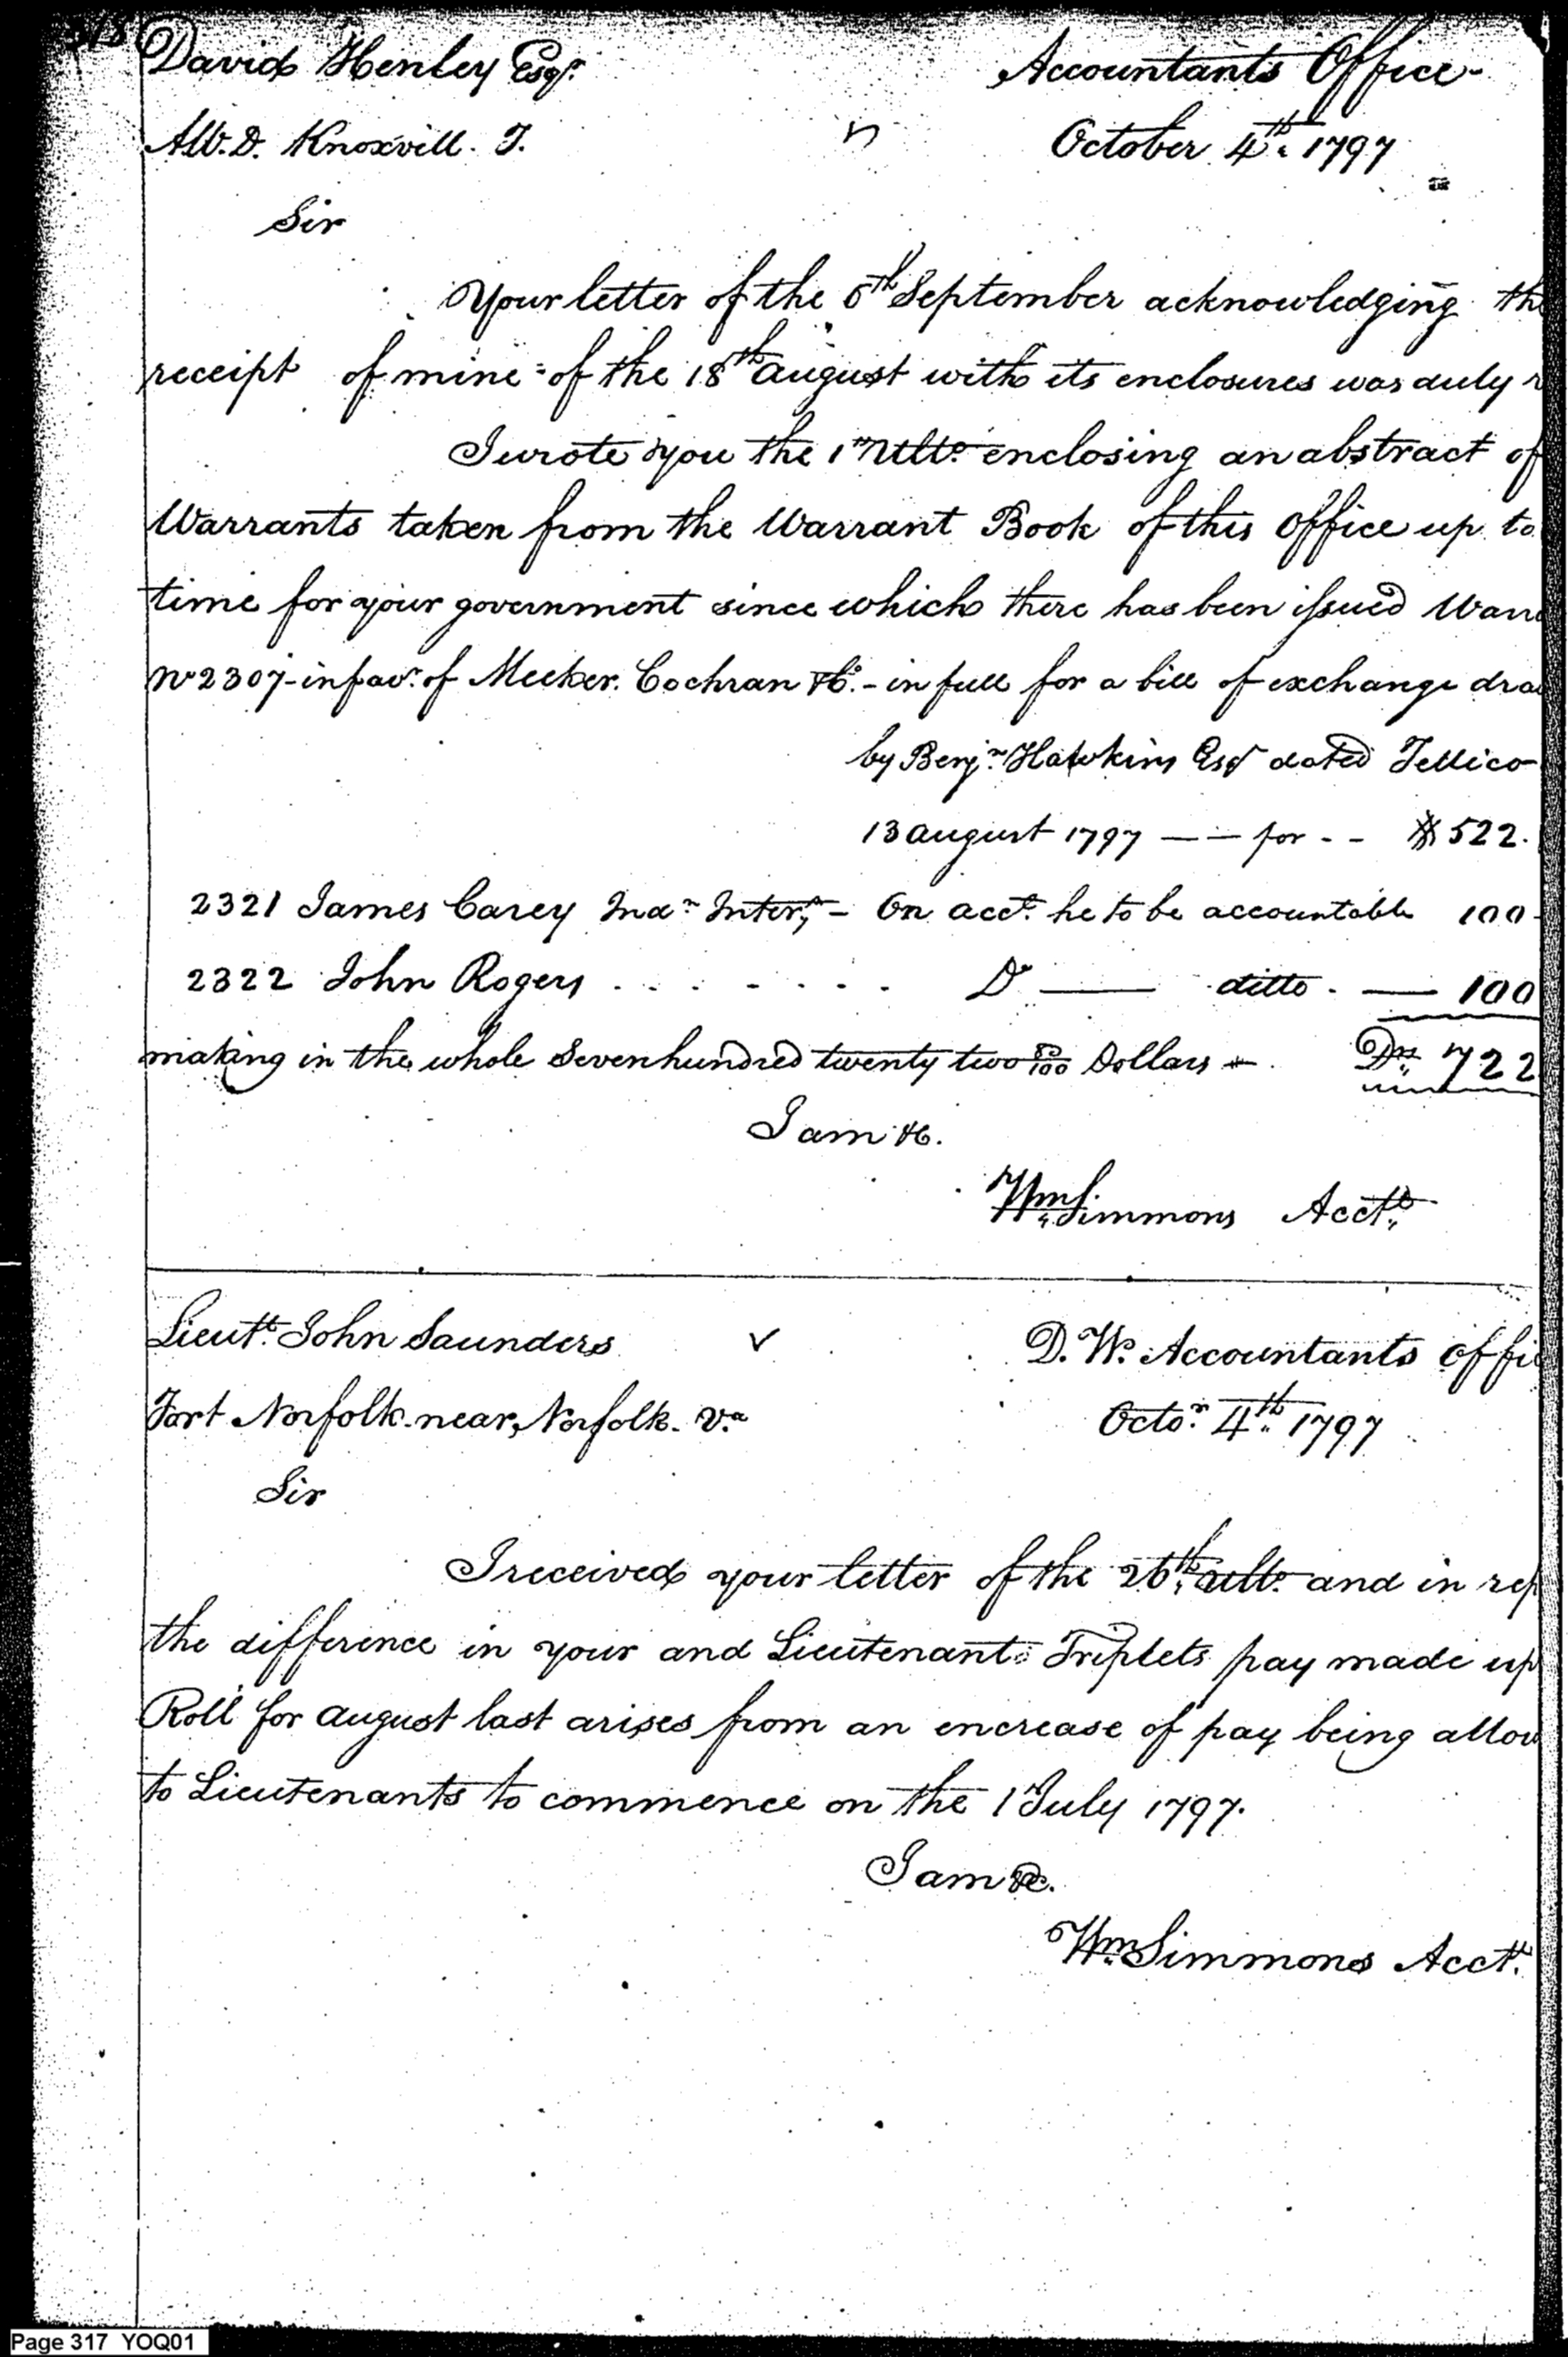 318
David Henley Esqr. Accountants Office
A.W.D. Knoxvill. T. October 4th. 1797
Sir
Your letter of the 6th September acknowledging the
receipt of mine of the 18th August with its enclosures was duly r
I wrote you the 1 Ulto. enclosing an abstract of
Warrants taken from the Warrant Book of this Office up to
time for your government since which there has been issued Warra
No 2307 - in favr. of Meeker. Cochran &Co. - in full for a bill of exchange dra
by Benjn. Hawkins Esqr dated Tellico
13 August 1797 — — for - - $522.
2321 James Carey Indn Interr, - On acct. he to be accountable 100
2322 John Rogers . . . . . . . Do — ditto. — 100
making in the whole Seven hundred twenty two /100 Dollars Drs. 722
I am &c.
Wm Simmons Acctt.
Lieutt. John Saunders D. W. Accountants offi
Fort Norfolk near, Norfolk. Va. Octor. 4th. 1797
Sir
I received your letter of the 26th. ulto. and in rep
the difference in your and Lieutenants Triplets pay made up
Roll for August last arises from an encrease of pay being allow
to Lieutenants to commence on the 1 July 1797.
I am &c.
Wm. Simmons Acctt.
Page 317 YOQ01